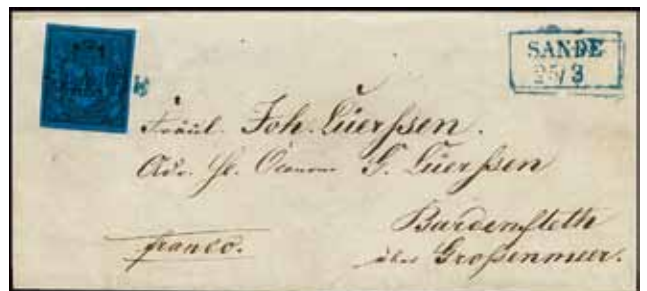 SANDE
25/3
Fräul. Joh. Lüerssen.
Adr. Hr. Oeconom G. Lüerssen
Bardenfleth
über Großenmeer.
franco.